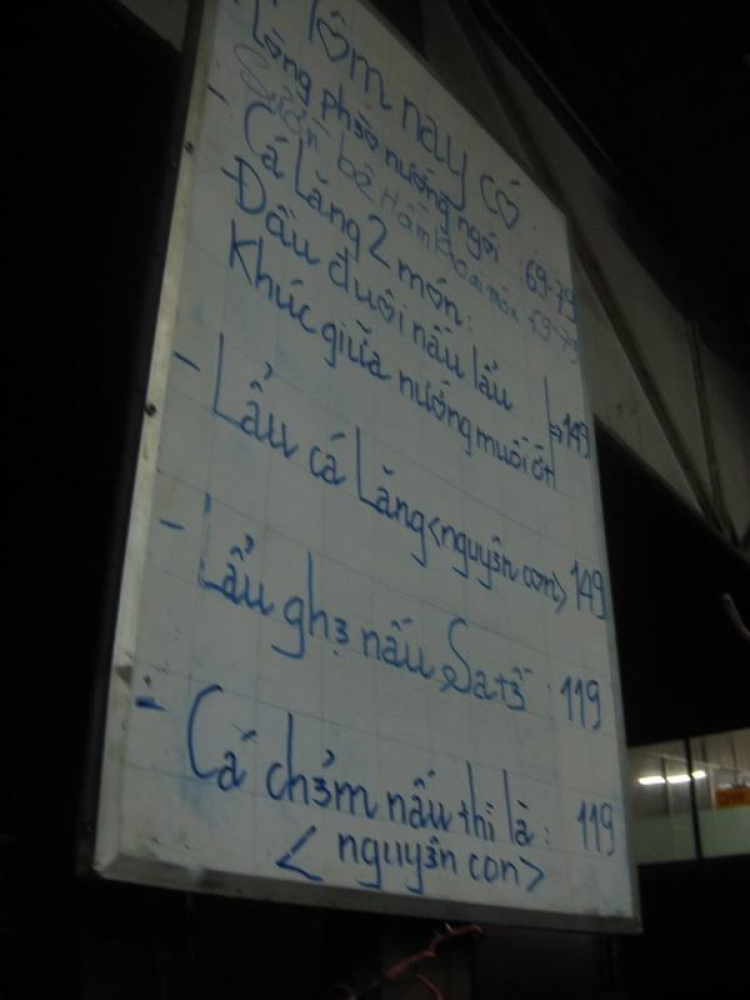 Hôm nay có
Lòng phèo nướng ngói 69-79
Sườn bê Hầm Khoai môn 69-79
- Cá Lăng 2 món:
Đầu đuôi nấu lẩu
Khúc giữa nướng muối ớt => 149
- Lẩu cá Lăng <nguyên con> 149
- Lẩu ghẹ nấu Satế 119
- Cá chẻm nấu thì là: 119
< nguyên con>